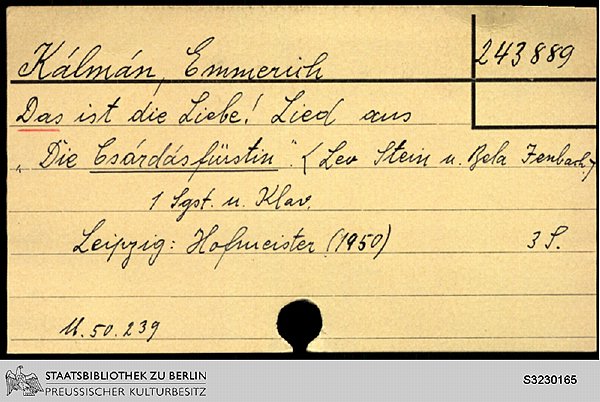 Kálmán, Emmerich
243889
Das ist die Liebe! Lied aus
„Die Csárdásfürstin". <Leo Stein u. Bela Jenbach.>
1 Sgst. u. Klav.
Leipzig: Hofmeister (1950)
3 S.
M.50.239
STAATSBIBLIOTHEK ZU BERLIN
PREUSSISCHER KULTURBESITZ
S3230165